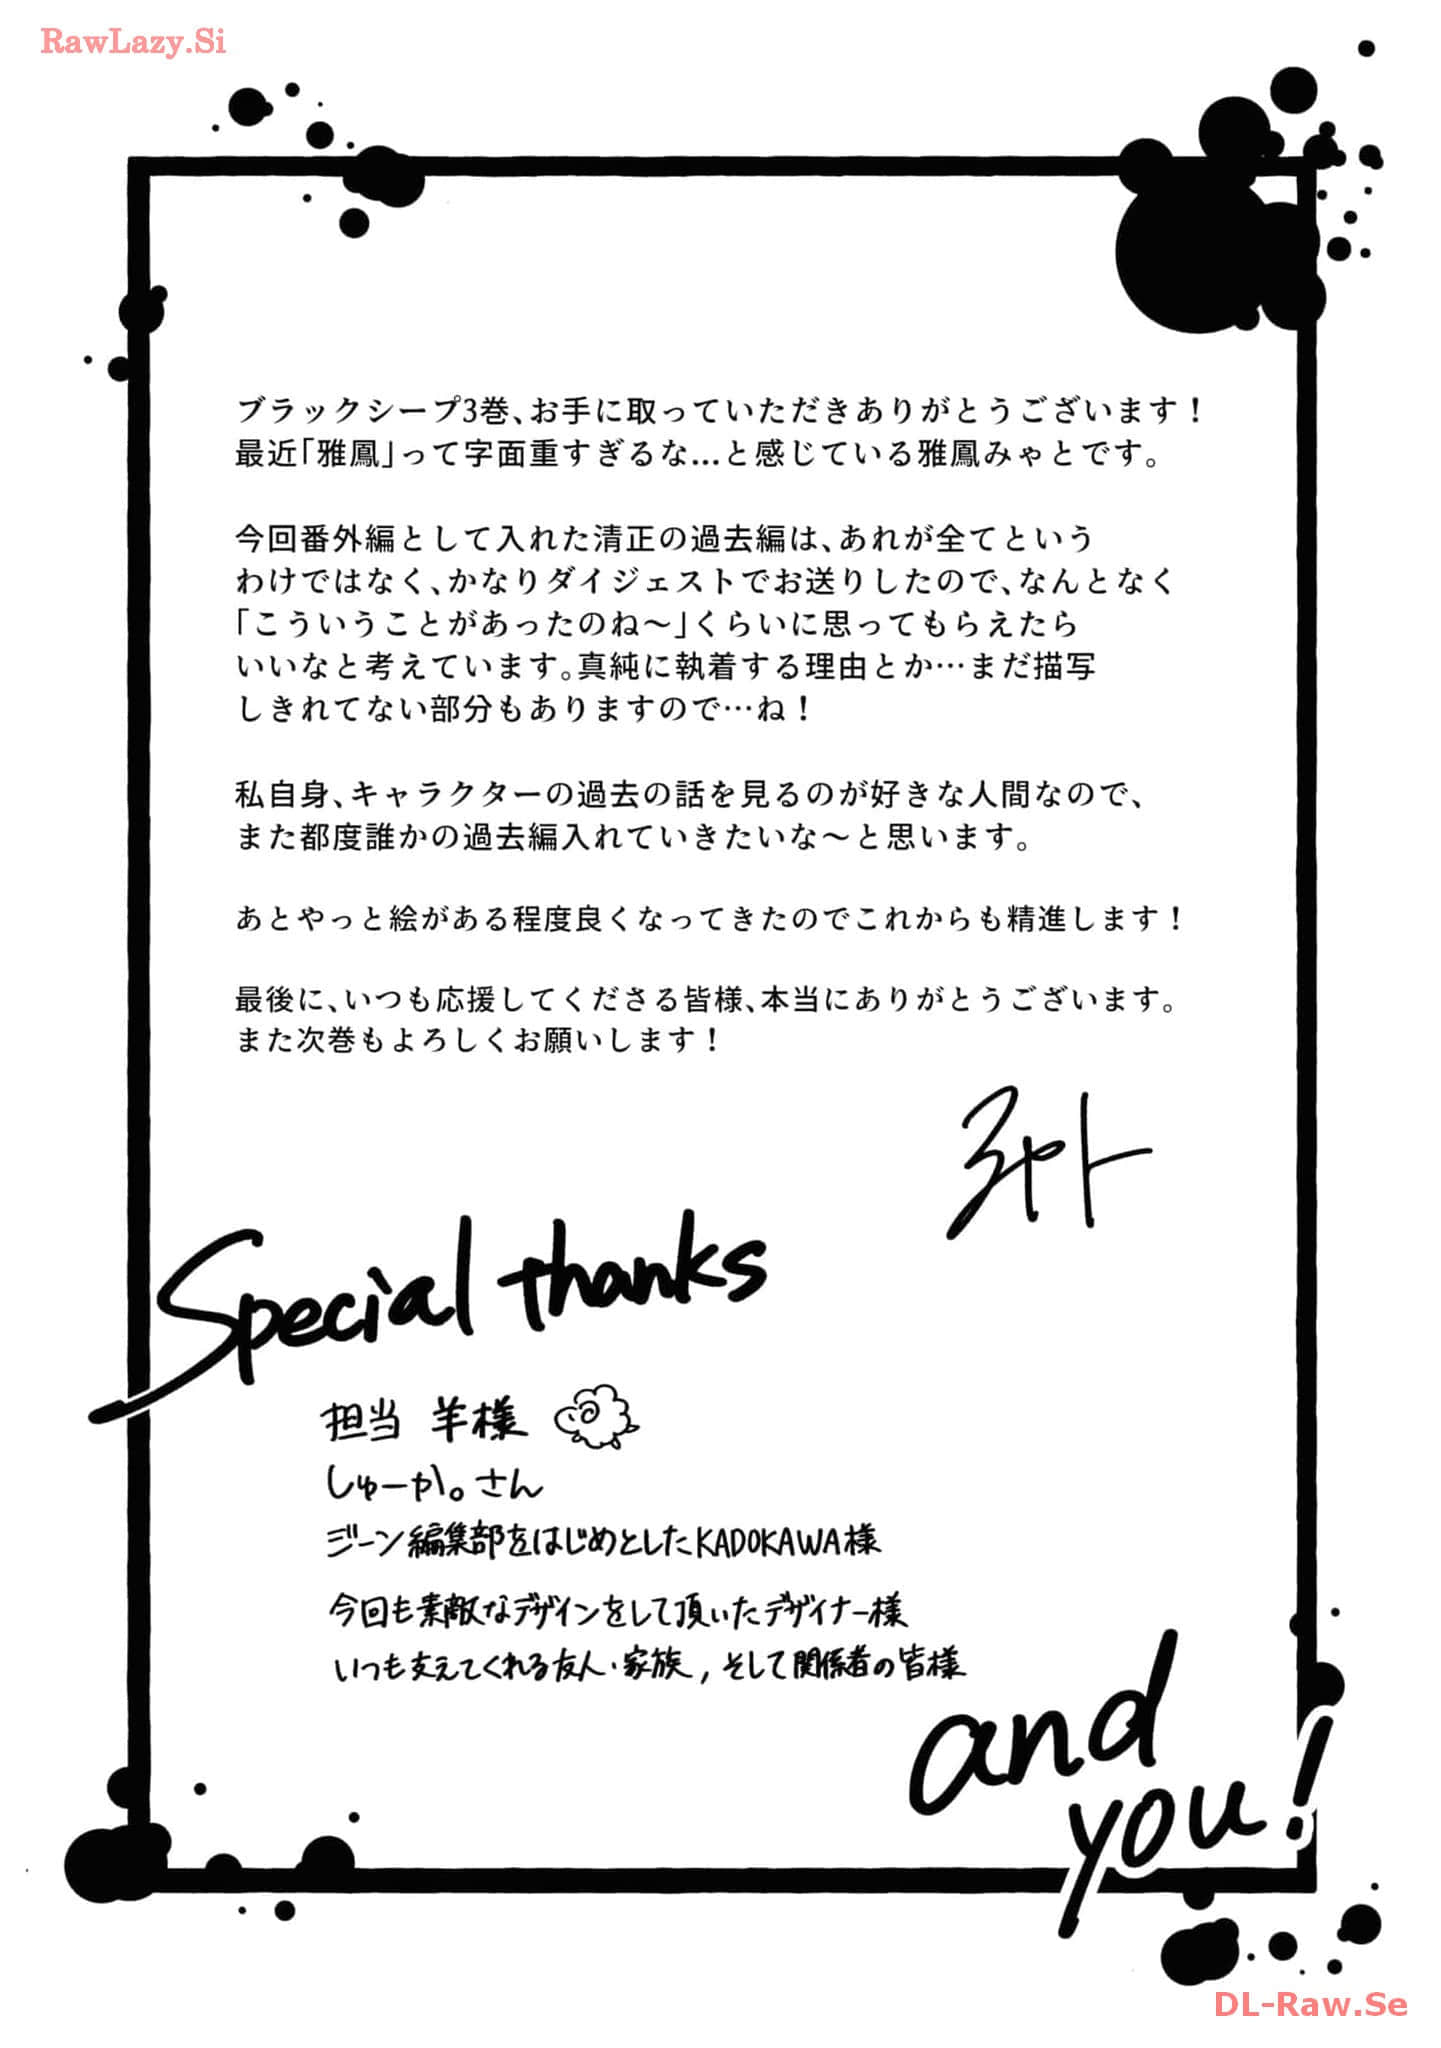 RawLazy.Si
ブラックシープ3巻、お手に取っていただきありがとうございます！
最近「雅鳳」って字面重すぎるな…と感じている雅鳳みゃとです。
今回番外編として入れた清正の過去編は、あれが全てという
わけではなく、かなりダイジェストでお送りしたので、なんとなく
「こういうことがあったのね〜」くらいに思ってもらえたら
いいなと考えています。真純に執着する理由とか…まだ描写
しきれてない部分もありますので…ね！
私自身、キャラクターの過去の話を見るのが好きな人間なので、
また都度誰かの過去編入れていきたいな〜と思います。
あとやっと絵がある程度良くなってきたのでこれからも精進します！
最後に、いつも応援してくださる皆様、本当にありがとうございます。
また次巻もよろしくお願いします！
ミャト
Special thanks
担当 羊様
しゅーか。さん
ジーン編集部をはじめとしたKADOKAWA様
今回も素敵なデザインをして頂いたデザイナー様
いつも支えてくれる友人・家族，そして関係者の皆様
and
you!
DL-Raw.Se